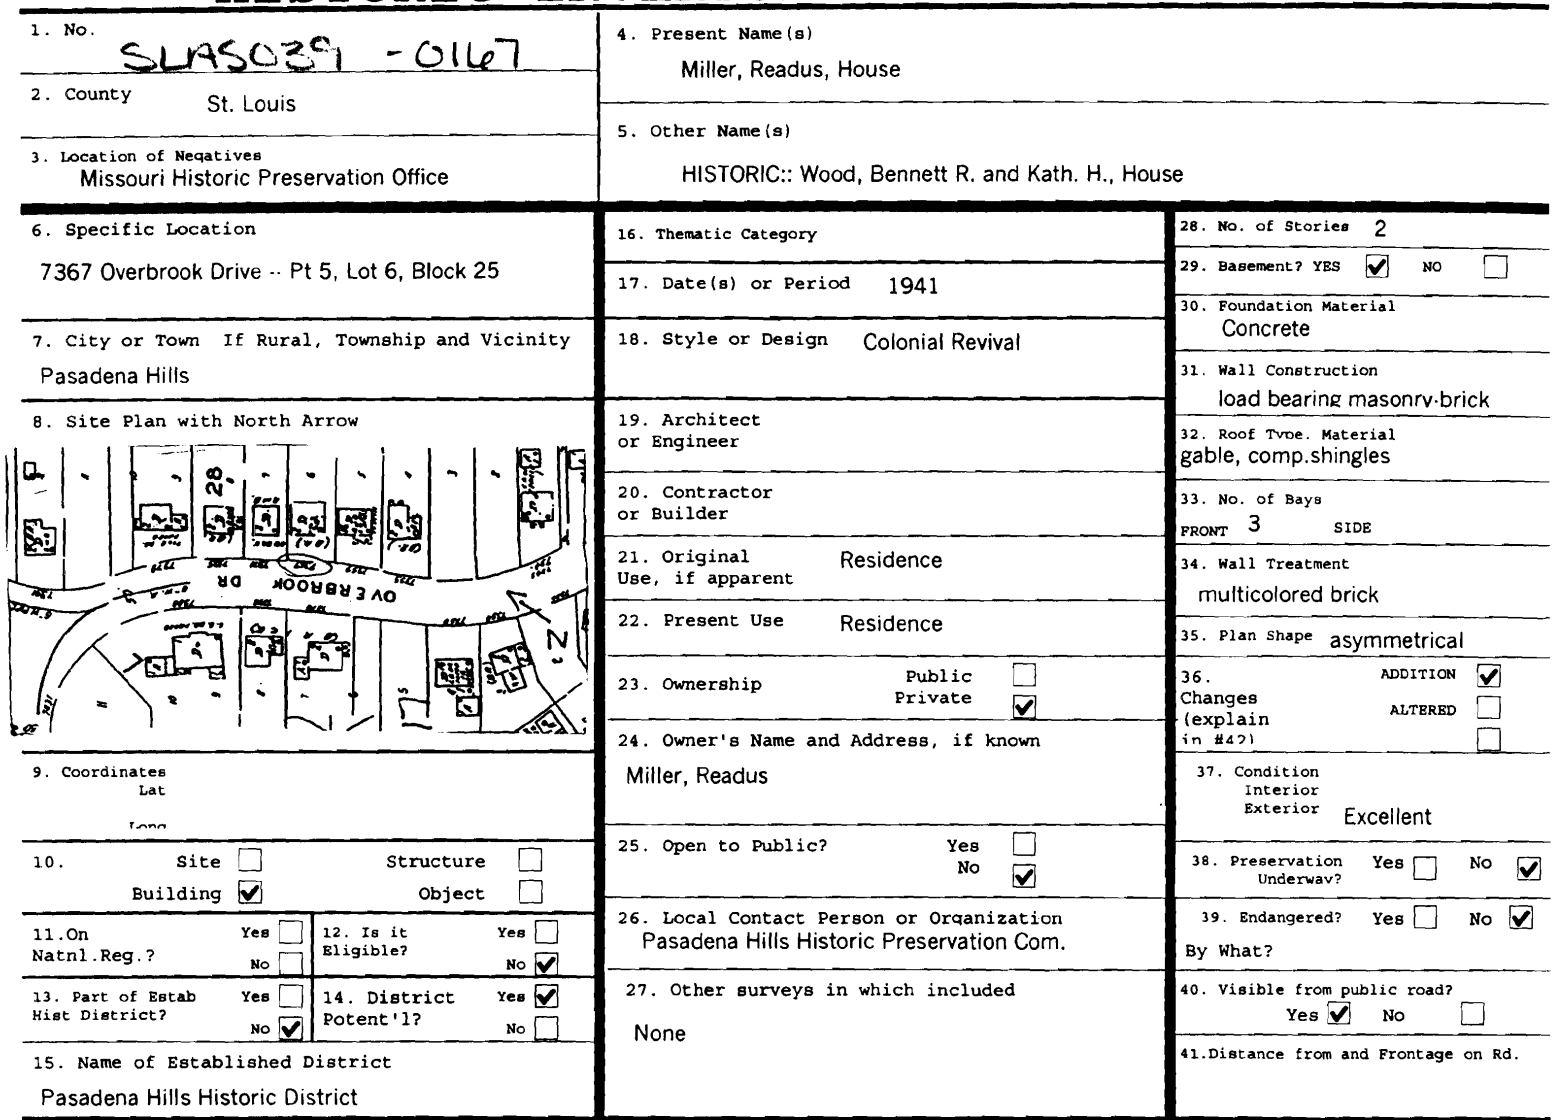 1. No.
SLAS039 -0167
2. County
St. Louis
3. Location of Negatives
Missouri Historic Preservation Office
4. Present Name(s)
Miller, Readus, House
5. Other Name(s)
HISTORIC:: Wood, Bennett R. and Kath. H., House
6. Specific Location
7367 Overbrook Drive -- Pt 5, Lot 6, Block 25
7. City or Town If Rural, Township and Vicinity
Pasadena Hills
8. Site Plan with North Arrow
28
OVERBROOK DR
N
9. Coordinates
Lat
Long
10. Site Structure
Building ✓ Object
11.On Natnl.Reg.? Yes No
12. Is it Eligible? Yes No ✓
13. Part of Estab Hist District? Yes No ✓
14. District Potent'l? Yes ✓ No
15. Name of Established District
Pasadena Hills Historic District
16. Thematic Category
17. Date(s) or Period 1941
18. Style or Design Colonial Revival
19. Architect
or Engineer
20. Contractor
or Builder
21. Original Residence
Use, if apparent
22. Present Use Residence
23. Ownership Public
Private ✓
24. Owner's Name and Address, if known
Miller, Readus
25. Open to Public? Yes
No ✓
26. Local Contact Person or Organization
Pasadena Hills Historic Preservation Com.
27. Other surveys in which included
None
28. No. of Stories 2
29. Basement? YES ✓ NO
30. Foundation Material
Concrete
31. Wall Construction
load bearing masonry-brick
32. Roof Type. Material
gable, comp.shingles
33. No. of Bays
FRONT 3 SIDE
34. Wall Treatment
multicolored brick
35. Plan Shape asymmetrical
36. ADDITION ✓
Changes
(explain ALTERED
in #42)
37. Condition
Interior
Exterior Excellent
38. Preservation Yes No ✓
Underway?
39. Endangered? Yes No ✓
By What?
40. Visible from public road?
Yes ✓ No
41.Distance from and Frontage on Rd.